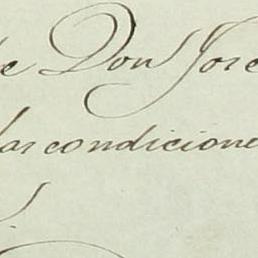 e Don Jose
las condicione